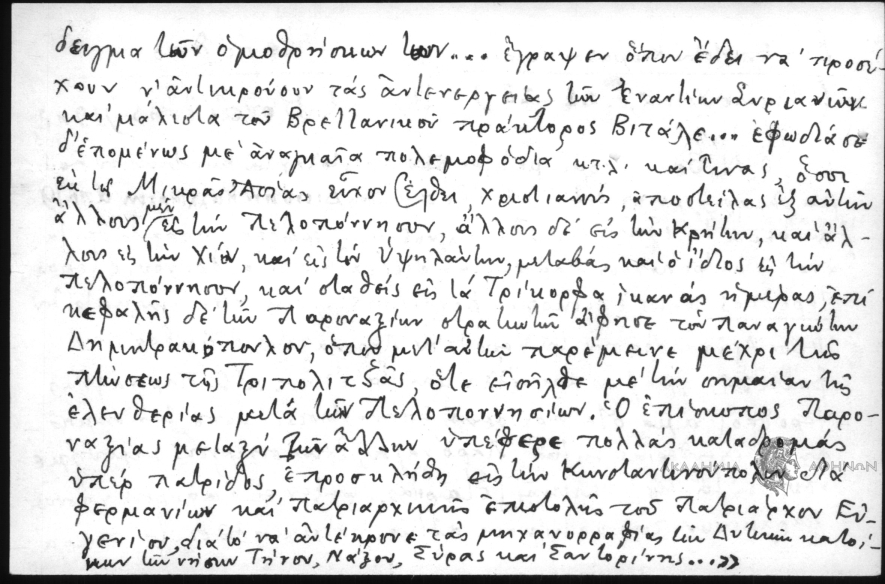 δειγμα τῶν ὁμοθρήσκων των... ἔγραψεν ὅπου ἔδει νά προσέ-
χουν ν' ἀντικρούουν τάς ἀντενεργείας τῶν ἐναντίων Συριανῶν
καί μάλιστα τοῦ Βρεττανικοῦ πράκτορος Βιτάλε... ἐφωδίασε
δ' ἑπομένως μέ ἀναγκαῖα πολεμοφόδια κτλ. καί τινας, ὅσοι
ἐκ τῆς Μικρᾶς Ἀσίας εἶχον ἔλθει, χριστιανούς, ἀποστείλας ἐξ αὐτῶν
ἄλλους μέν εἰς τήν Πελοπόννησον, ἄλλους δέ εἰς τήν Κρήτην, καί ἄλ-
λους εἰς τήν Χίον, καί εἰς τόν Ὑψηλάντην, μεταβάς καί ὁ ἴδιος εἰς τήν
Πελοπόννησον, καί σταθείς εἰς τά Τρίκορφα ἱκανάς ἡμέρας, ἐπί
κεφαλῆς δέ τῶν Παροναξίων στρατιωτῶν ἄφησε τόν Παναγιώτην
Δημητρακόπουλον, ὅπου μετ' αὐτῶν παρέμεινε μέχρι τῆς
πτώσεως τῆς Τριπολιτζᾶς, ὅτε εἰσῆλθε μέ τήν σημαίαν τῆς
ἐλευθερίας μετά τῶν Πελοποννησίων. Ὁ ἐπίσκοπος Παρο-
ναξίας μεταξύ τῶν ἄλλων ὑπέφερε πολλάς καταδρομάς
ὑπέρ πατρίδος, ἐπροσκλήθη εἰς τήν Κωνσταντινούπολιν διά
φερμανίων καί Πατριαρχικῆς ἐπιστολῆς τοῦ Πατριάρχου Εὐ-
γενίου, διά τό νά ἀντέκρουε τάς μηχανορραφίας τῶν Δυτικῶν κατοί-
κων τῶν νήσων Τήνου, Νάξου, Σύρας καί Σαντορίνης...»
ΑΚΑΔΗΜΙΑ ΑΘΗΝΩΝ